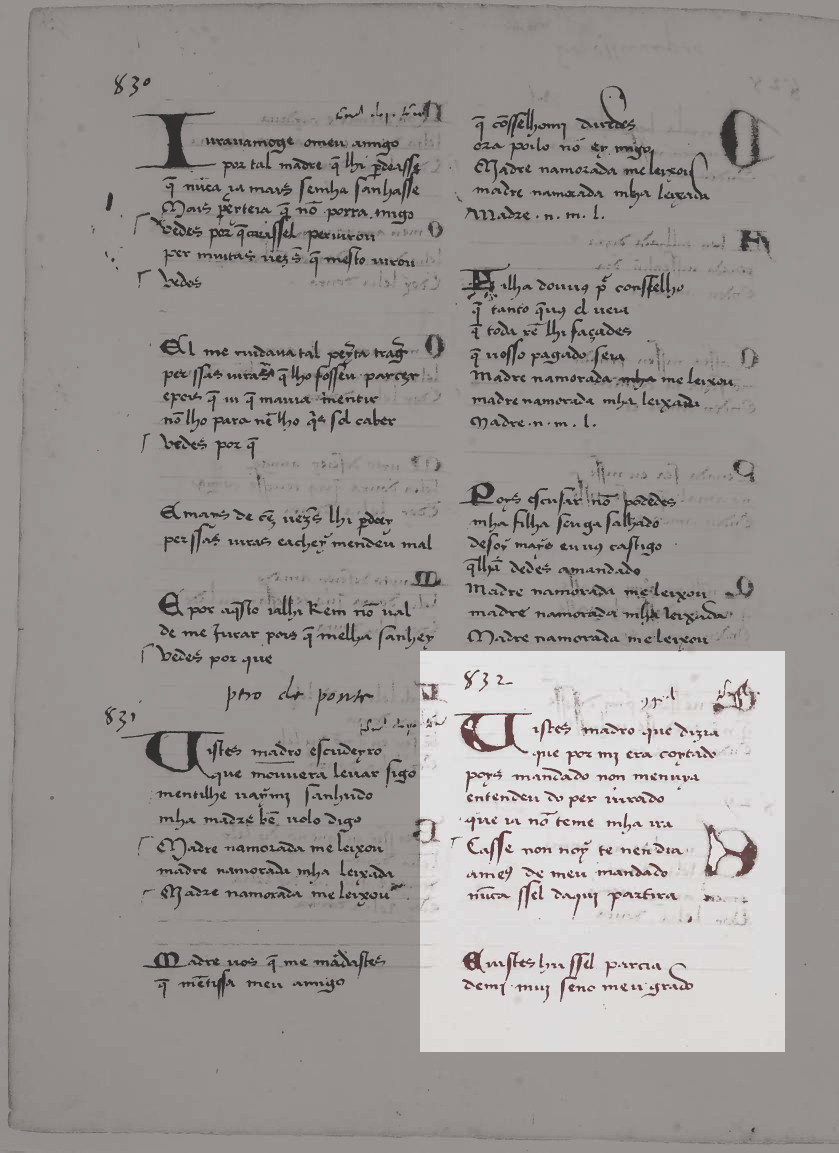 830
Iuravamoge omeu amigo
por tal madre q̄ lhi p̄doasse
q̄ nūca ia mais semha sanhasse
Mais p̄erteia q̄ nō porra migo
vedes por q̄
per muitas uez̄s q̄ mesto iurou
vedes
El me cuidava tal
per ssas iuras q̄ lho fosseu parcer
epois q̄ ui q̄ mauia mentir
nō lho para nē lho q̄s sol caber
vedes por q̄
E mays de cē uez̄s lhi p̄doey
per ssas iuras eachey mendeu mal
E por aq̄sto ia lhi Rem nō ual
de me Iurar pois q̄ melha sanhey
vedes por que
pero de ponte
831
Vistes madro escudeyro
que mouuera leuar sigo
mentilhe uaymi sanhudo
mha madre bē uolo digo
Madre namorada me leixou
madre namorada mha leixada
Madre namorada me leixou
Madre uos q̄ me mādastes
q̄ mētissa meu amigo
q̄ cōsselhomi daredes
ora poilo nō ey migo
Madre namorada me leixou
madre namorada mha leixada
Madre . n. m. l.
Filha douuꝯ pʳ consselho
q̄ tanto q̄uꝯ el ueia
q̄ toda rē lhi façades
q̄ uosso pagado seia
Madre namorada mha me leixou
madre namorada mha leixada
Madre . n. m. l.
Poys escusar nō podedes
mha filha seu gasalhado
desoy mays eu uꝯ castigo
dedes amandado
Madre namorada me leixou
madre namorada mha leixada
Madre namorada me leixou
832
Vistes madro que dizia
que por mi era coytado
poys mandado non menuya
entendeu do per iurado
que ia nō teme mha ira
Casse non noy te nen dia
ames de meu mandado
nūca ssel daqui partira
E uistes hu ssel parcia
demi mui seno meu grado